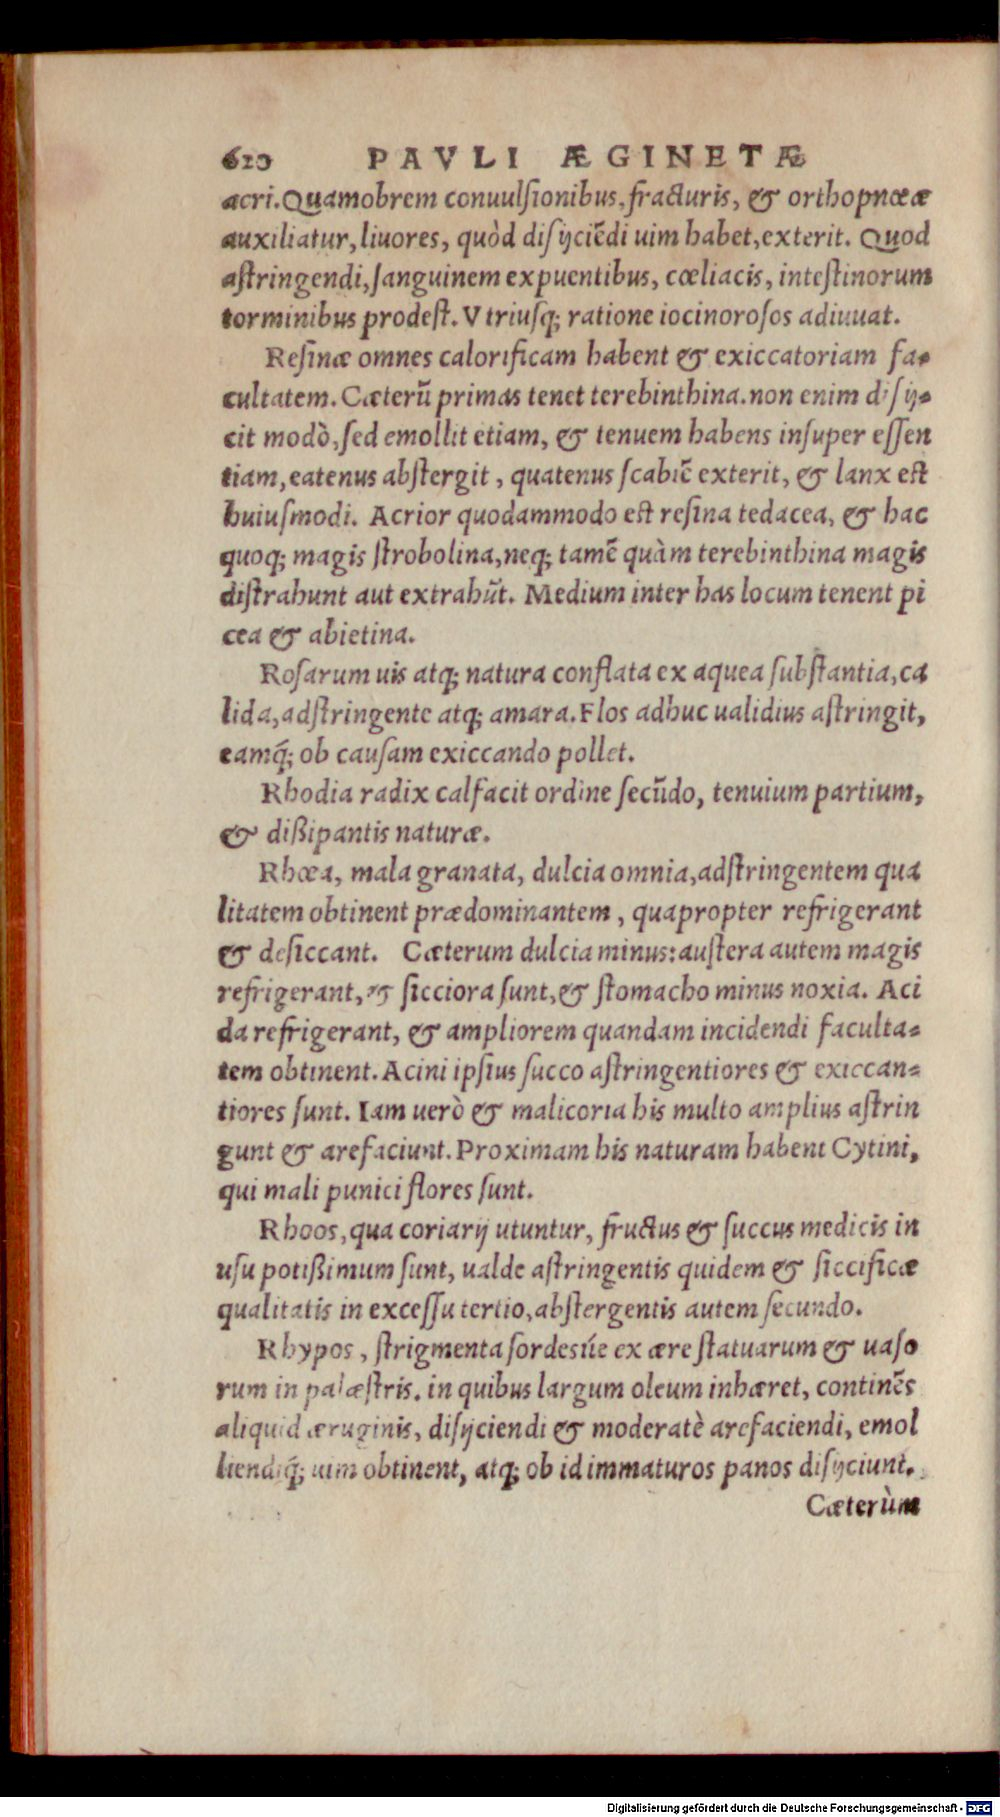 620 PAVLI ÆGINETÆ
acri. Quamobrem conuulſionibus, fracturis, & orthopnœæ
auxiliatur, liuores, quòd diſijciẽdi uim habet, exterit. Quod
aſtringendi, ſanguinem expuentibus, cœliacis, inteſtinorum
torminibus prodeſt. Vtriuſq; ratione iocinoroſos adiuuat.
Reſinæ omnes calorificam habent & exiccatoriam fa-
cultatem. Cæterũ primas tenet terebinthina. non enim diſij-
cit modò, ſed emollit etiam, & tenuem habens inſuper eſſen
tiam, eatenus abſtergit, quatenus ſcabiẽ exterit, & lanx eſt
huiuſmodi. Acrior quodammodo eſt reſina tedacea, & hac
quoq; magis ſtrobolina, neq; tamẽ quàm terebinthina magis
diſtrahunt aut extrahũt. Medium inter has locum tenent pi
cea & abietina.
Roſarum uis atq; natura conflata ex aquea ſubſtantia, ca
lida, adſtringente atq; amara. Flos adhuc ualidius aſtringit,
eamq́; ob cauſam exiccando pollet.
Rhodia radix calfacit ordine ſecũdo, tenuium partium,
& dißipantis naturæ.
Rhœa, mala granata, dulcia omnia, adſtringentem qua
litatem obtinent prædominantem, quapropter refrigerant
& deſiccant. Cæterum dulcia minus: auſtera autem magis
refrigerant, & ſicciora ſunt, & ſtomacho minus noxia. Aci
da refrigerant, & ampliorem quandam incidendi faculta-
tem obtinent. Acini ipſius ſucco aſtringentiores & exiccan-
tiores ſunt. Iam uerò & malicoria his multo amplius aſtrin
gunt & arefaciunt. Proximam his naturam habent Cytini,
qui mali punici flores ſunt.
Rhoos, qua coriarij utuntur, fructus & ſuccus medicis in
uſu potißimum ſunt, ualde aſtringentis quidem & ſiccificæ
qualitatis in exceſſu tertio, abſtergentis autem ſecundo.
Rhypos, ſtrigmenta ſordesúe ex ære ſtatuarum & uaſo
rum in palæſtris. in quibus largum oleum inhæret, continẽs
aliquid æruginis, diſijciendi & moderatè arefaciendi, emol
liendiq́; uim obtinent, atq; ob id immaturos panos diſijciunt.
Cæterùm
Digitalisierung gefördert durch die Deutsche Forschungsgemeinschaft - DFG